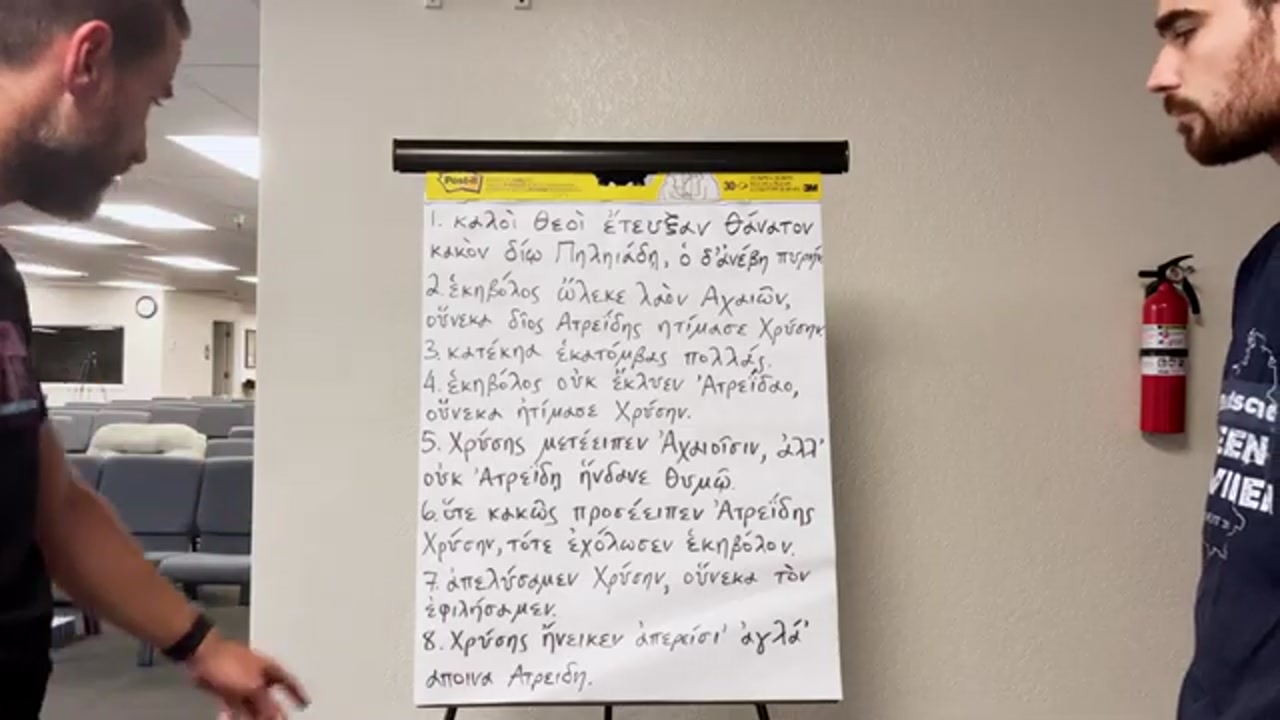 Post-it
30
3M
1. καλοὶ θεοὶ ἔτευξαν θάνατον
κακὸν δίῳ Πηληιάδῃ, ὁ δ'ἀνέβη
2. ἑκηβόλος ὤλεκε λαὸν Ἀχαιῶν,
οὕνεκα δῖος Ατρεΐδης ητίμασε Χρύσην
3. κατέκηα ἑκατόμβας πολλάς.
4. ἑκηβόλος οὐκ ἔκλυεν Ἀτρεΐδαο,
οὕνεκα ἠτίμασε Χρύσην.
5. Χρύσης μετέειπεν Ἀχαιοῖσιν, ἀλλ'
οὐκ Ἀτρεΐδῃ ἥνδανε θυμῷ.
6. ὅτε κακῶς προσέειπεν Ἀτρεΐδης
Χρύσην, τότε ἐχόλωσεν ἑκηβόλον.
7. ἀπελύσαμεν Χρύσην, οὕνεκα τὸν
ἐφιλήσαμεν.
8. Χρύσης ἤνεικεν ἀπερείσι' ἀγλά'
άποινα Ατρειδη.
EEN